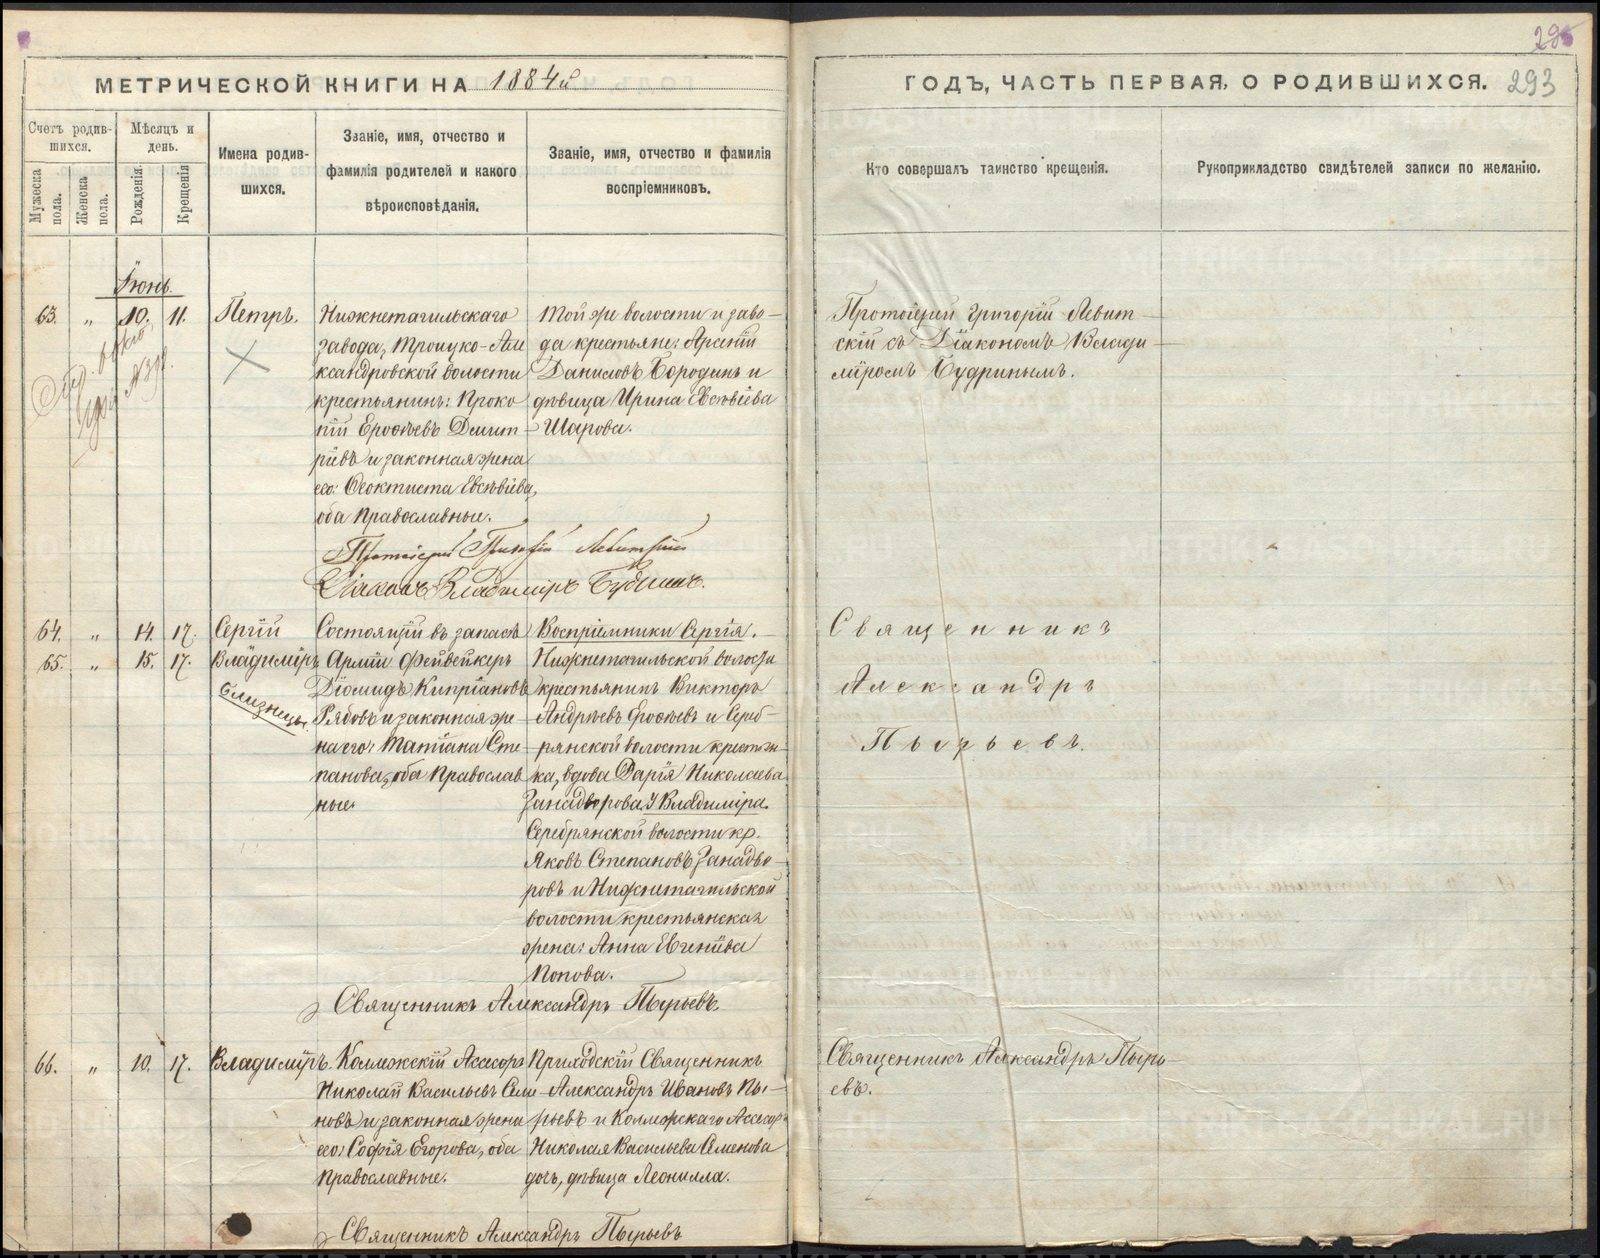 295
МЕТРИЧЕСКОЙ КНИГИ НА 1884й
ГОДЪ, ЧАСТЬ ПЕРВАЯ, О РОДИВШИХСЯ. 293
Счетъ родив-
шихся.
Мужеска
пола.
Женска
пола.
Мѣсяцъ и
день.
Рожденія.
Крещенія
Имена родив-
шихся.
Званіе, имя, отчество и
фамилія родителей и какого
вѣроисповѣданія.
Званіе, имя, отчество и фамилія
воспріемниковъ.
Кто совершалъ таинство крещенія.
Рукоприкладство свидѣтелей записи по желанію.
Іюнь.
63. " 10. 11. Петръ.
Нижнетагильскаго
завода, Троицко-Але
ксандровской волости
крестьянинъ: Проко
пій Ерофѣевъ Дмит-
ріевъ и законная жена
его: Ѳеоктиста Евсѣвіева,
оба Православные.
Той же волости и заво-
да крестьяне: Арсеній
Даниловъ Бородинъ и
дѣвица Ирина Евсѣвіева
Шарова.
Протоіерей Григорій Левит-
скій съ Діакономъ Влади-
міромъ Будринымъ.
Протоіерей Григорій Левитскій
Діаконъ Владиміръ Будринъ.
64. " 14. 17. Сергій
65. " 15. 17. Владиміръ
близнецы.
Состоящій въ запасѣ
Арміи Фейвейкеръ
Діомидъ Кипріановъ
Рябовъ и законная же-
на его: Татіана Сте-
панова, оба Православ
ные.
Воспріемники Сергія.
Нижнетагильской волости
крестьянинъ Викторъ
Андрѣевъ Ерофѣевъ и Сереб-
рянской волости крестьян-
ка, вдова Дарія Николаева
Занадворова. У Владиміра.
Серебрянской волости кр.
Яковъ Степановъ Занадво-
ровъ и Нижнетагильской
волости крестьянская
жена: Анна Евгеніева
Попова.
Священникъ
Александръ
Пырьевъ.
Священникъ Александръ Пырьевъ.
66. " 10. 17. Владиміръ.
Коллежскій Ассесоръ
Николай Васильевъ Семе-
новъ и законная жена
его: Софія Егорова, оба
Православные.
Приходскій Священникъ
Александръ Ивановъ Пы-
рьевъ и Коллежскаго Ассесора
Николая Васильева Семенова
дочь, дѣвица Леонилла.
Священникъ Александръ Пырь-
евъ.
Священникъ Александръ Пырьевъ